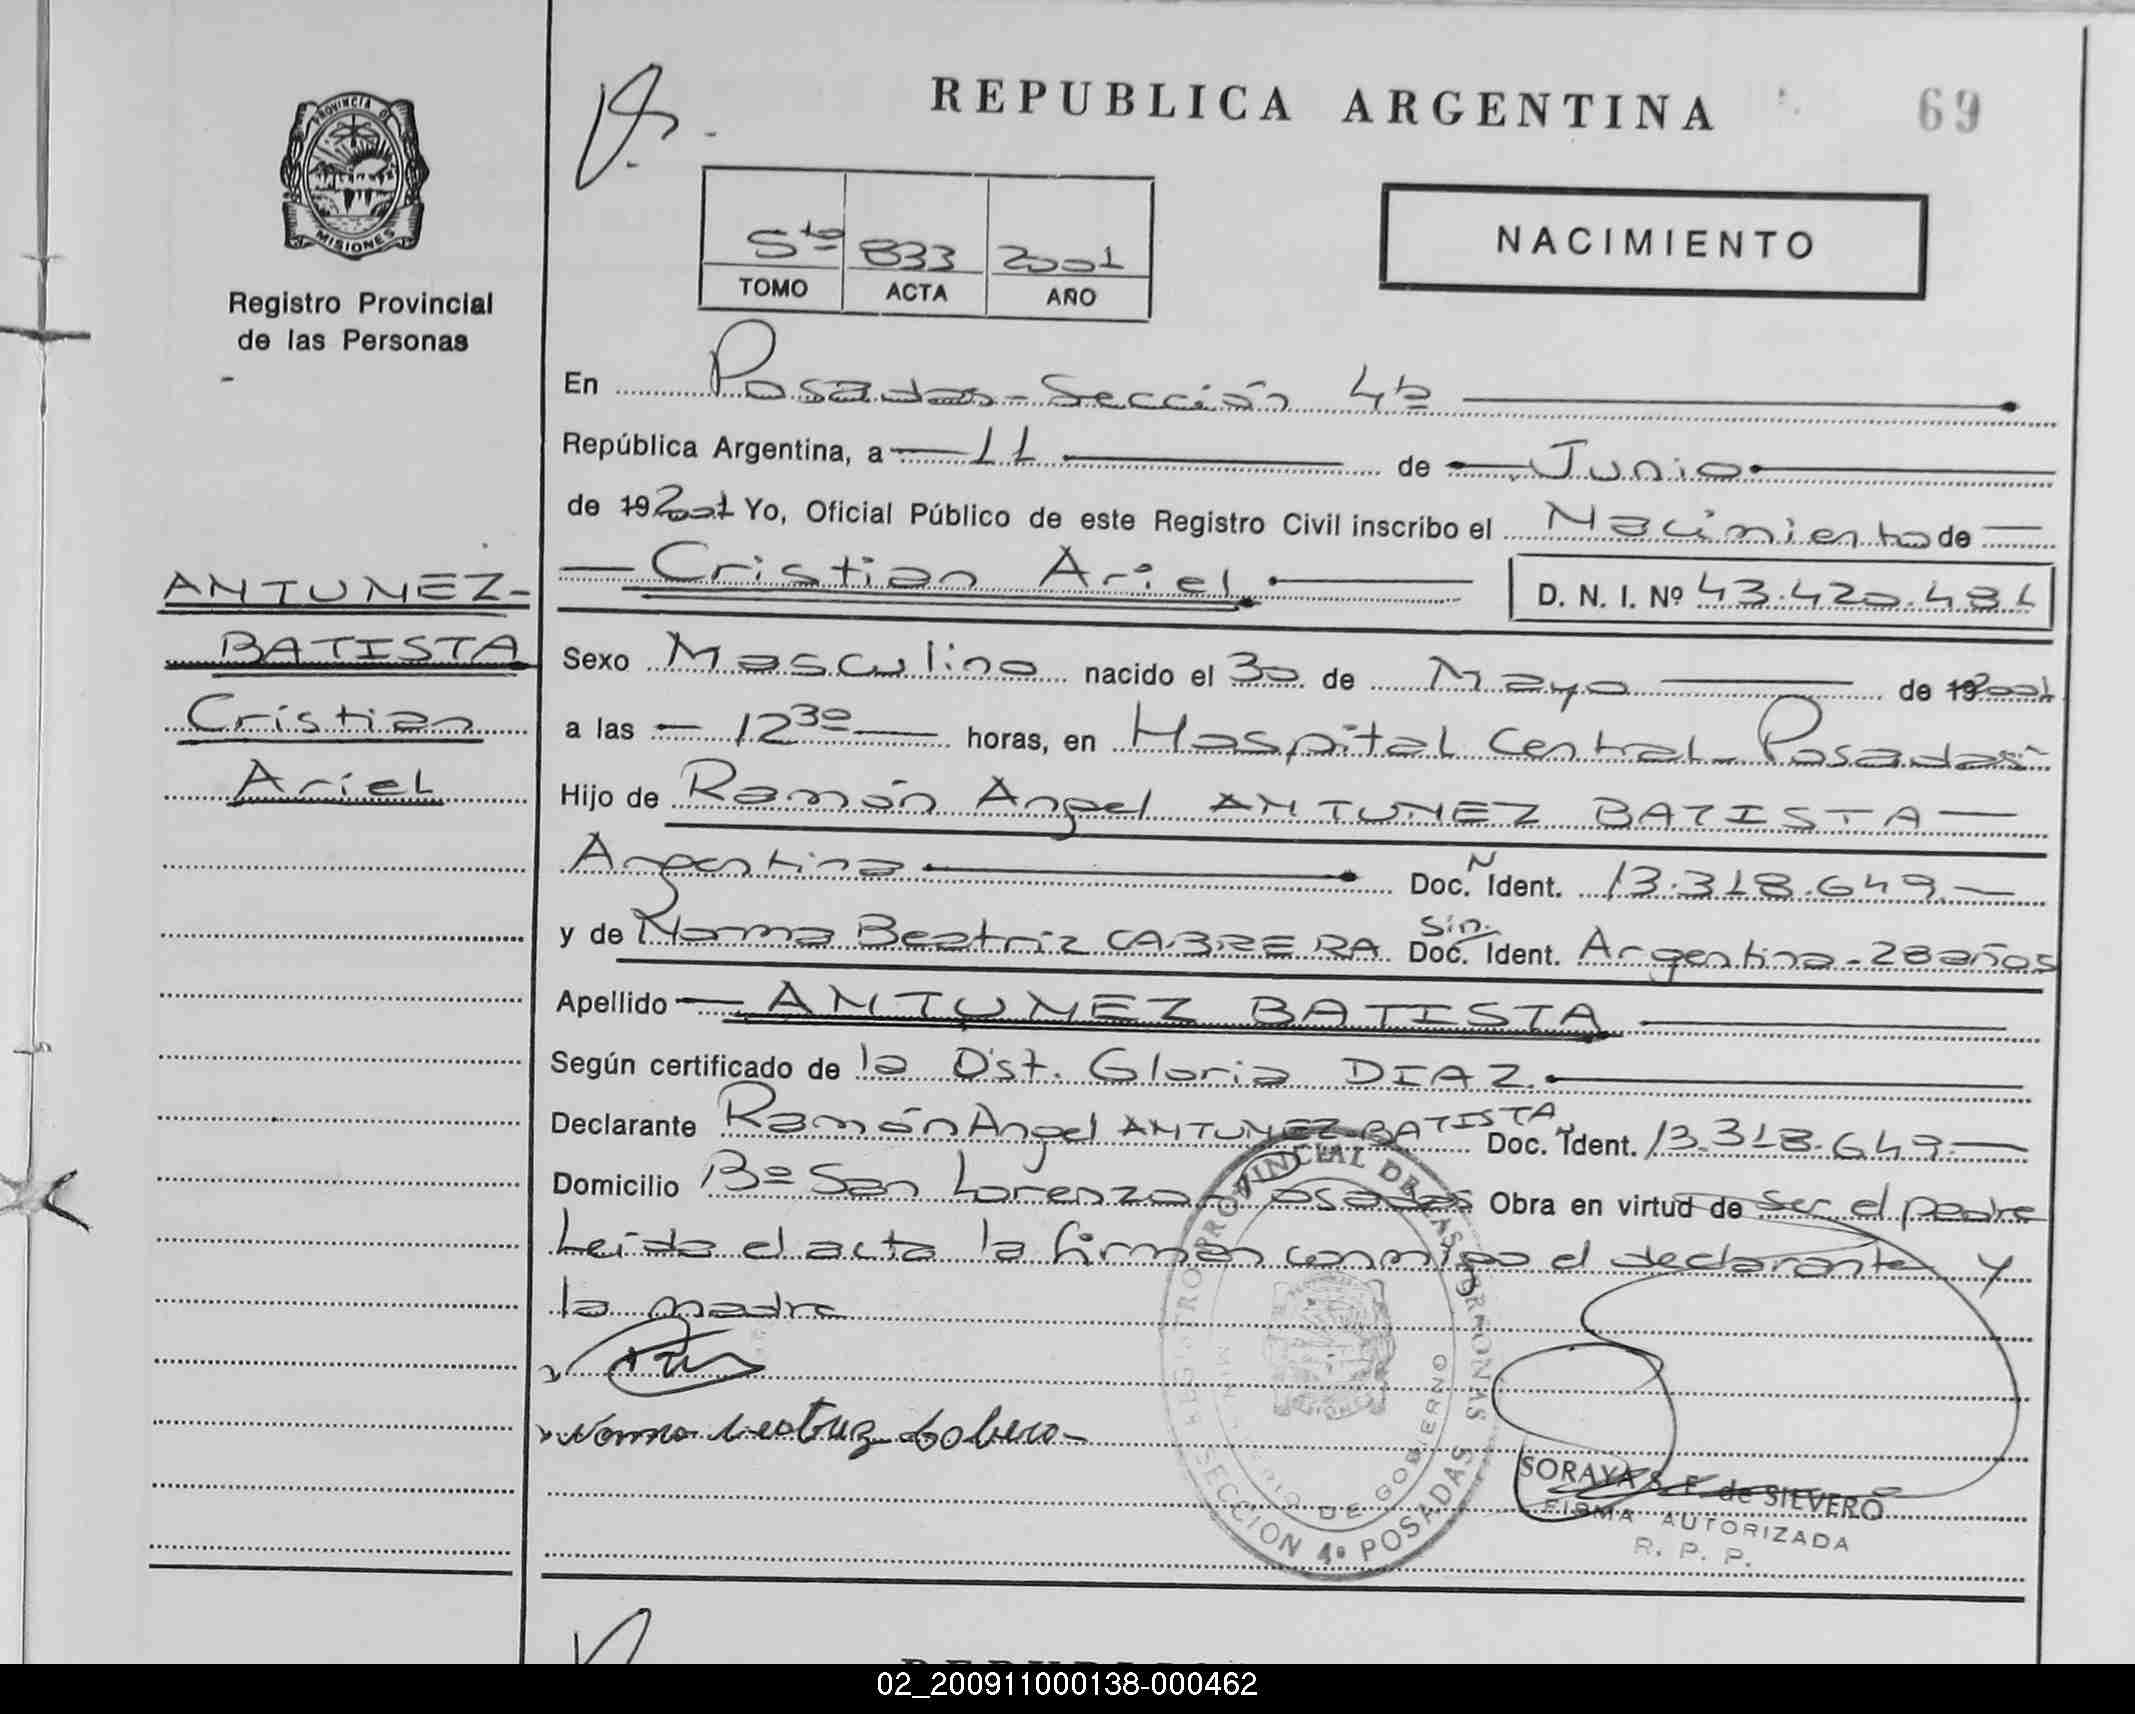 REPUBLICA ARGENTINA
69
PROVINCIA DE
MISIONES
Registro Provincial
de las Personas
5to 833 2001
TOMO ACTA AÑO
NACIMIENTO
En Posadas - Sección 4ta
República Argentina, a 11 de Junio
de 19 2001 Yo, Oficial Público de este Registro Civil inscribo el Nacimiento de
Cristian Ariel. D. N. I. Nº 43.420.481
ANTUNEZ-
BATISTA
Cristian
Ariel
Sexo Masculino nacido el 30 de Mayo de 19 2001
a las 12 30 horas, en Hospital Central - Posadas
Hijo de Ramón Angel ANTUNEZ BATISTA
Argentina Doc. N Ident. 13.318.649.
y de Norma Beatriz CABRERA Sin. Doc. Ident. Argentina - 28 años
Apellido ANTUNEZ BATISTA
Según certificado de la Ost. Gloria DIAZ.
Declarante Ramón Angel ANTUNEZ-BATISTA Doc. Ident. 13.318.649.
Domicilio Bº San Lorenzo - Posadas Obra en virtud de ser el padre
Leída el acta la firman conmigo el declarante y
la madre
Norma Beatriz Cabrera
REGISTRO PROVINCIAL DE LAS PERSONAS
MINISTERIO DE GOBIERNO
SECCION 4º POSADAS
SORAYA S. F. de SILVERO
FIRMA AUTORIZADA
R. P. P.
02_200911000138-000462